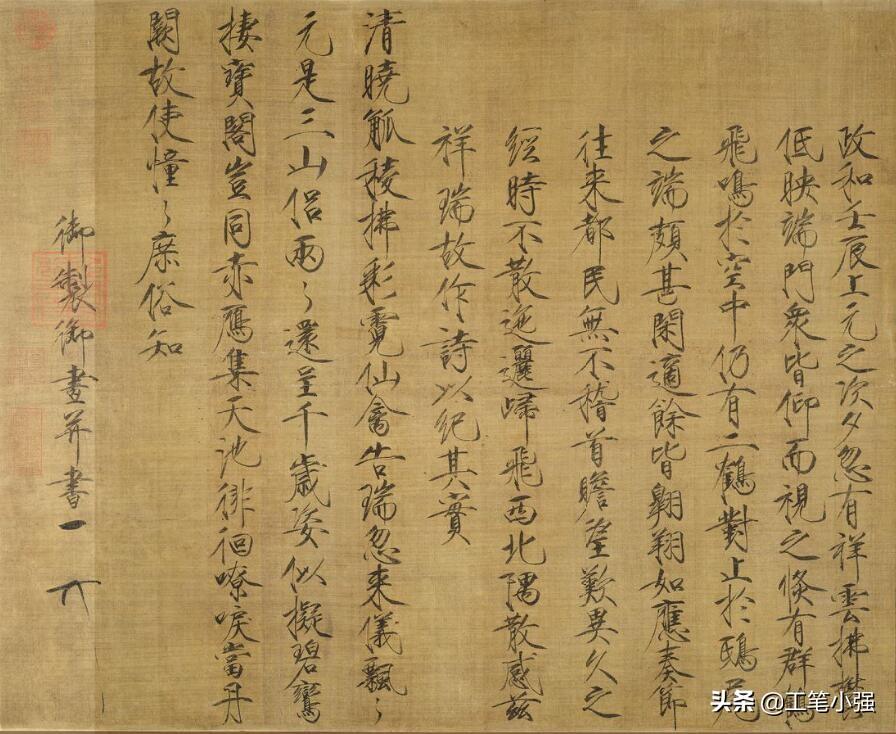 政和壬辰上元之次夕忽有祥雲拂鬱
低映端門衆皆仰而視之倏有群鶴
飛鳴於空中仍有二鶴對止於鴟尾
之端頗甚閑適餘皆翱翔如應奏節
往来都民無不稽首瞻望歎異久之
經時不散迤邐歸飛西北隅散感茲
祥瑞故作詩以紀其實
清曉觚稜拂彩霓仙禽告瑞忽来儀飄〻
元是三山侶兩〻還呈千歲姿似擬碧鸞
棲寶閣豈同赤鴈集天池徘徊嘹唳當丹
闕故使憧〻庶俗知
御製御畫并書
头条 @工笔小强